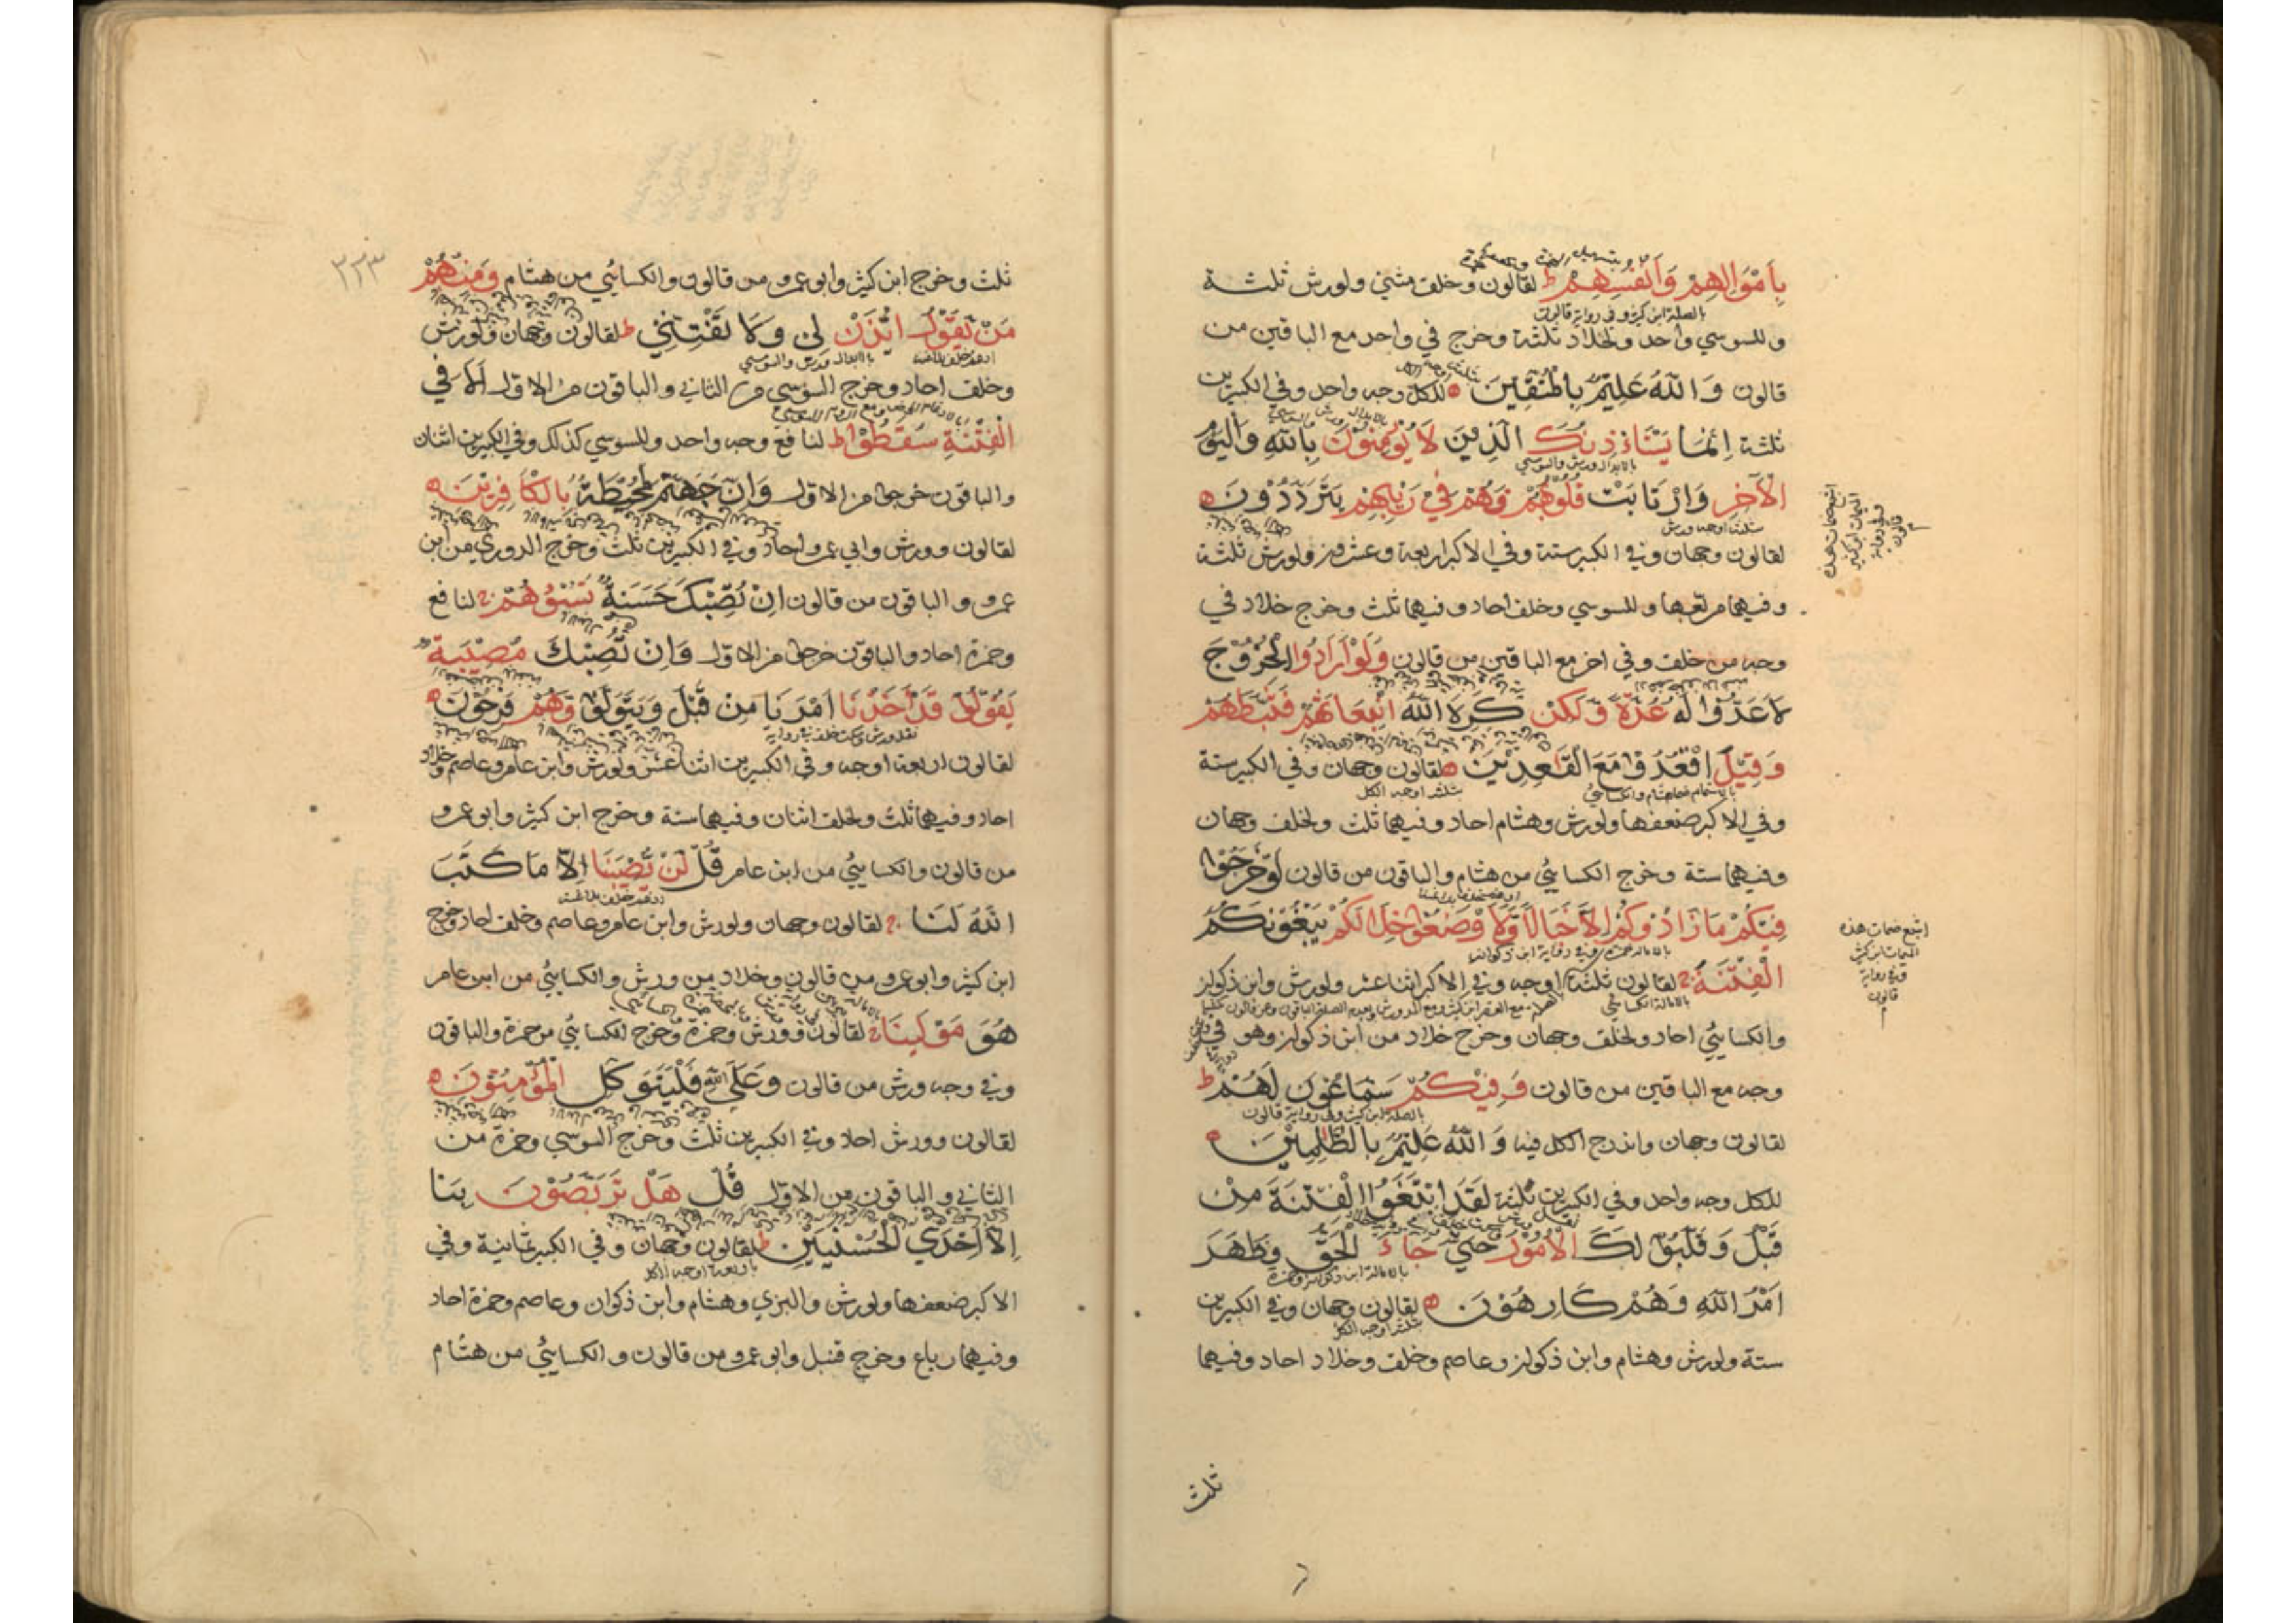 بِاَمْوَالِهِمْ وَاَنْفُسِهِمْ ط لقالون وخلف مثني ولورش ثلثة
بالصلة ابن كثير وفي رواية قالون
وللسوسي واحد ولخلاد ثلثة وخرج في واحد مع الباقين من
قالون وَاللّٰهُ عَلِيمٌ بِالْمُتَّقِينَ ه للكل وجه واحد وفي الكبيرين
ثلثة اِنَّمَا يَسْتَاْذِنُكَ الَّذِينَ لَا يُؤْمِنُونَ بِاللّٰهِ وَالْيَوْمِ
بالابدال ورش والسوسي
الْاٰخِرِ وَارْتَابَتْ قُلُوبُهُمْ فَهُمْ فِي رَيْبِهِمْ يَتَرَدَّدُونَ ه
بثلثة اوجه ورش
لقالون وجهان وفي الكبير ستة وفي الاكبر اربعة وعشرون ولورش ثلثة
وفيهما مربعها وللسوسي وخلف احاد وفيهما ثلث وخرج خلاد في
وجه من خلف وفي اخر مع الباقين من قالون وَلَوْ اَرَادُوا الْخُرُوجَ
لَاَعَدُّوا لَهُ عُدَّةً وَلٰكِنْ كَرِهَ اللّٰهُ انْبِعَاثَهُمْ فَثَبَّطَهُمْ
وَقِيلَ اقْعُدُوا مَعَ الْقَاعِدِينَ ه لقالون وجهان وفي الكبير ستة
بالاشمام هشام والكسائي بثلثة اوجه الكل
وفي الاكبر ضعفها ولورش وهشام احاد وفيهما ثلث ولخلف وجهان
وفيهما ستة وخرج الكسايئي من هشام والباقون من قالون لَوْ خَرَجُوا
فِيكُمْ مَا زَادُوكُمْ اِلَّا خَبَالًا وَلَا وْضَعُوا خِلَالَكُمْ يَبْغُونَكُمُ
بالامالة حمزة وفي رواية ابن ذكوان
الْفِتْنَةَ لقالون ثلثة اوجه وفي الاكبر اثنا عشر ولورش وابن ذكوان
بالامالة الكسائي
والكسايئي احاد ولخلف وجهان وخرج خلاد من ابن ذكوان وهو في
وجه مع الباقين من قالون وَفِيكُمْ سَمَّاعُونَ لَهُمْ ط
بالصلة ابن كثير وفي رواية قالون
لقالون وجهان واندرج الكل فيه وَاللّٰهُ عَلِيمٌ بِالظَّالِمِينَ ه
للكل وجه واحد وفي الكبيرين ثلثة لَقَدِ ابْتَغَوُا الْفِتْنَةَ مِنْ
قَبْلُ وَقَلَّبُوا لَكَ الْاُمُورَ حَتّٰي جَاءَ الْحَقُّ وَظَهَرَ
بالامالة ابن ذكوان وحمزة
اَمْرُ اللّٰهِ وَهُمْ كَارِهُونَ ه لقالون وجهان وفي الكبيرين
بثلثة اوجه الكل
ستة ولورش وهشام وابن ذكوان وعاصم وخلف وخلاد احاد وفيهما
ثلث
اشبع ضمات هذه
الميمات ابن كثير
وفي رواية
قالون
اشبع ضمات هذه
الميمات ابن كثير
وفي رواية
قالون
٣٢٣
ثلث وخرج ابن كثير وابو عمرو من قالون والكسايئي من هشام وَمِنْهُمْ
مَنْ يَقُولُ ائْذَنْ لِي وَلَا تَفْتِنِّي ط لقالون وجهان ولورش
ادغم خلف بلا غنة بالابدال ورش والسوسي
وخلف احاد وخرج السوسي من الثاني والباقون من الاول اَلَا فِي
الْفِتْنَةِ سَقَطُوا ط لنافع وجه واحد وللسوسي كذلك وفي الكبيرين اثنان
والباقون خرجوا من الاول وَاِنَّ جَهَنَّمَ لَمُحِيطَةٌ بِالْكَافِرِينَ ه
لقالون وورش وابي عمرو احاد وفي الكبيرين ثلث وخرج الدوري من ابن
عمرو والباقون من قالون اِنْ تُصِبْكَ حَسَنَةٌ تَسُؤْهُمْ لنافع
وحمزة احاد والباقون خرجوا من الاول وَاِنْ تُصِبْكَ مُصِيبَةٌ
يَقُولُوا قَدْ اَخَذْنَا اَمْرَنَا مِنْ قَبْلُ وَيَتَوَلَّوْا وَهُمْ فَرِحُونَ ه
نقل ورش وسكت خلف في رواية
لقالون اربعة اوجه وفي الكبيرين اثنا عشر ولورش وابن عامر وعاصم وخلاد
احاد وفيهما ثلث ولخلف اثنان وفيهما ستة وخرج ابن كثير وابو عمرو
من قالون والكسايئي من ابن عامر قُلْ لَنْ يُصِيبَنَا اِلَّا مَا كَتَبَ
اللّٰهُ لَنَا لقالون وجهان ولورش وابن عامر وعاصم وخلف احاد وخرج
ابن كثير وابو عمرو من قالون وخلاد من ورش والكسايئي من ابن عامر
هُوَ مَوْلٰينَا لقالون وورش وحمزة وخرج الكسايئي من حمزة والباقون
وفي وجه ورش من قالون وَعَلَي اللّٰهِ فَلْيَتَوَكَّلِ الْمُؤْمِنُونَ ه
لقالون وورش احاد وفي الكبيرين ثلث وخرج السوسي وحمزة من
الثاني والباقون من الاول قُلْ هَلْ تَرَبَّصُونَ بِنَا
اِلَّا اِحْدَي الْحُسْنَيَيْنِ ط لقالون وجهان وفي الكبير ثمانية وفي
باربعة اوجه الكل
الاكبر ضعفها ولورش والبزي وهشام وابن ذكوان وعاصم وحمزة احاد
وفيهما رباع وخرج قنبل وابو عمرو من قالون والكسايئي من هشام